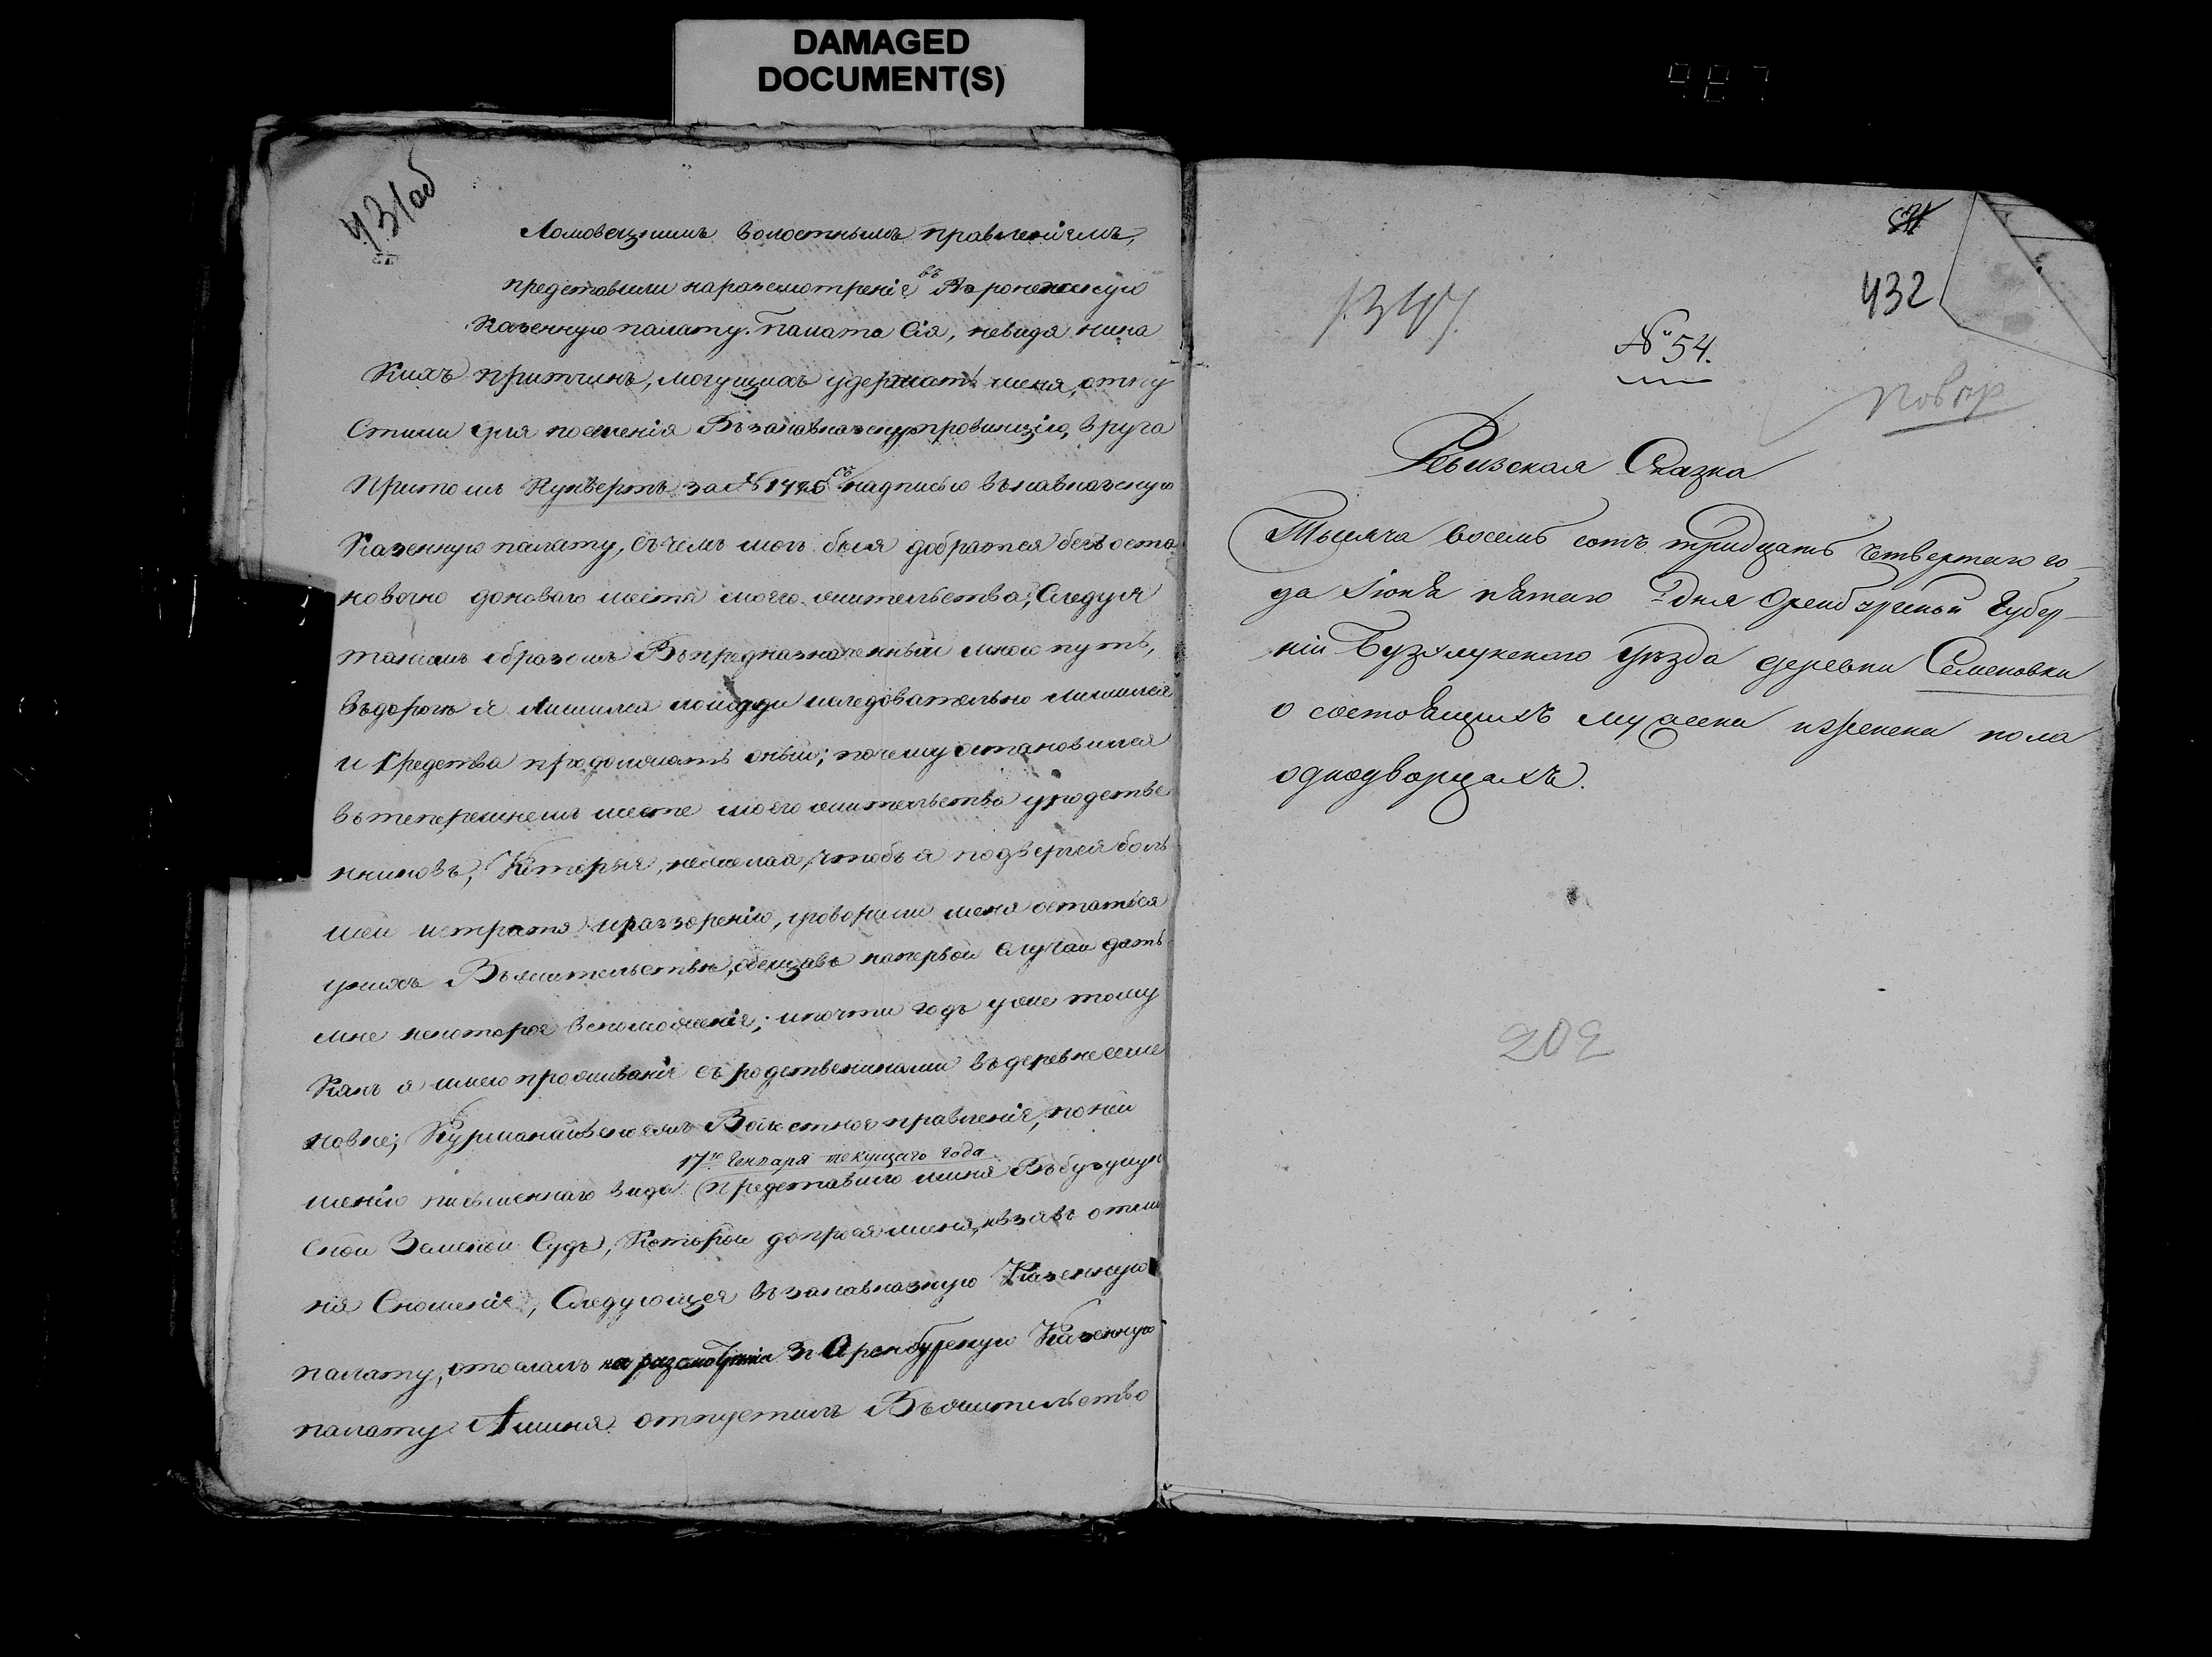 DAMAGED
DOCUMENT(S)
431об
Ломовецкимъ волостнымъ правленіемъ,
представили наразсмотреніе въ Воронежскую
Казенную палату. Палата Сія, невидя ника
Кихъ притчинъ, могущихъ удержать меня, отпу
Стили для поселенія Възакавказскую провинцію, вруча
Притомъ Кунвертъ за № 1776 съ надписью въкавказскую
Казенную палату, съчемъ могъ бы я добратся безъ оста
новочно доноваго места моего жительства; Следуя
такимъ образомъ Въпредназначенный мною путь,
въдороге я Лишился лошади иследовательно лишился
и Средства продолжать оный; почему остановился
втеперешнемъ месте моего жительства уродстве
нниковъ, Которыя, нежелая, чтобъ я подвергся боль
шей истрате иразоренію, уговорили меня остаться
унихъ Въжительстве, обещавъ напервой Случай дать
мне некоторое вспоможеніе; ипочти годъ уже тому
Какъ я имею проживаніе съ родственниками въдеревне семе
новке; Курманаевское Волостное правленіе, по неи
17го Генваря текущаго года
менію письменнаго вида представило меня Въбузулук
Ской Земской Судъ, Которой допрося меня, ивзявъ отме
ня Сношеніе, Следующея възакавказкую Казенную
палату, отослалъ на разсмотреніе въ Оренбургскую Казенную
палату Аменя отпустилъ Въжительство
432
1347.
№ 54.
Ревизская Сказка
Тысяча восемь сотъ тридцать четвертаго го
да Іюня пятаго Дня Оренбургской Губер
ніи Бузулукского уѣзда деревни Семеновки
о состоящихъ мужеска иженска пола
однодворцахъ.
202